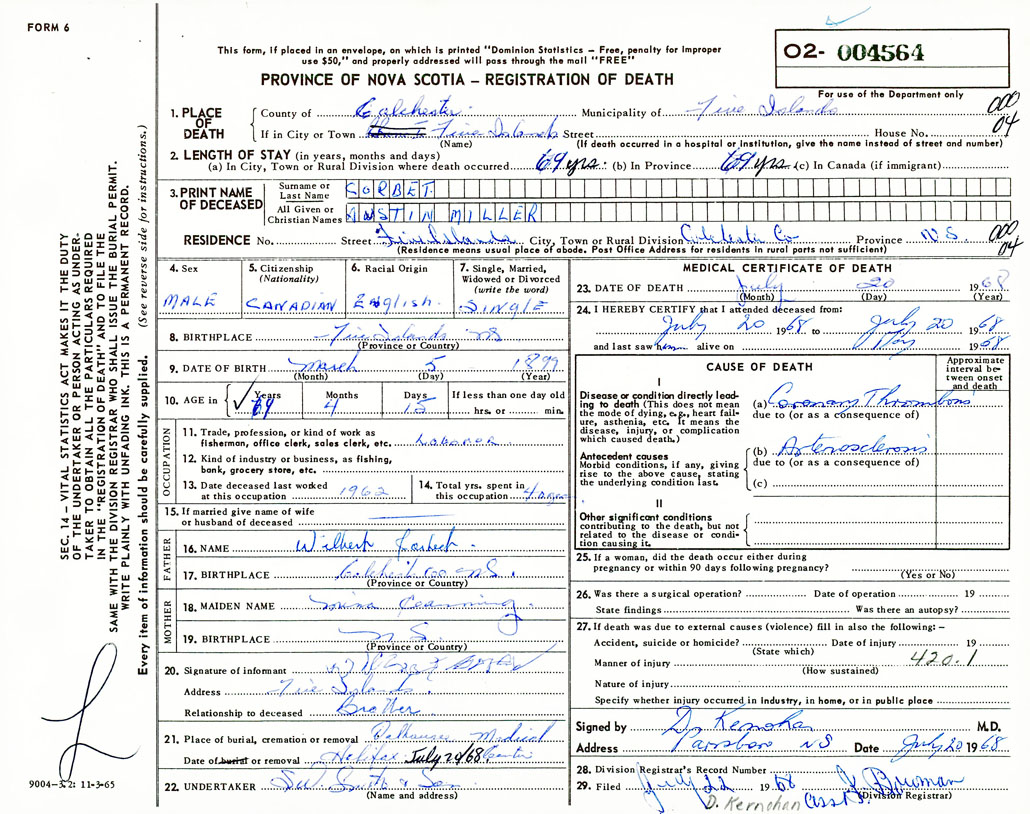 FORM 6
This form, if placed in an envelope, on which is printed "Dominion Statistics – Free, penalty for improper
use $50," and properly addressed will pass through the mail "FREE"
O2- 004564
PROVINCE OF NOVA SCOTIA – REGISTRATION OF DEATH
For use of the Department only
1. PLACE OF DEATH
County of Colchester Municipality of Five Islands 000
If in City or Town Five Islands Street House No. 04
(Name) (If death occurred in a hospital or institution, give the name instead of street and number)
2. LENGTH OF STAY (in years, months and days)
(a) In City, Town or Rural Division where death occurred 69 yrs. (b) In Province 69 yrs (c) In Canada (if immigrant)
3. PRINT NAME OF DECEASED
Surname or Last Name CORBET
All Given or Christian Names AUSTIN MILLER
RESIDENCE No. Street Five Islands City, Town or Rural Division Co Province N S 000 04
(Residence means usual place of abode. Post Office Address for residents in rural parts not sufficient)
4. Sex MALE
5. Citizenship (Nationality) CANADIAN
6. Racial Origin English.
7. Single, Married, Widowed or Divorced (write the word) SINGLE
8. BIRTHPLACE Five Islands NS
(Province or Country)
9. DATE OF BIRTH March 5 1899
(Month) (Day) (Year)
10. AGE in Years 69 Months 4 Days 15 If less than one day old hrs. or min.
OCCUPATION
11. Trade, profession, or kind of work as
fisherman, office clerk, sales clerk, etc. Laborer
12. Kind of industry or business, as fishing,
bank, grocery store, etc.
13. Date deceased last worked
at this occupation 1962
14. Total yrs. spent in
this occupation
15. If married give name of wife
or husband of deceased
FATHER
16. NAME Wilbert
17. BIRTHPLACE NS.
(Province or Country)
MOTHER
18. MAIDEN NAME
19. BIRTHPLACE N S.
(Province or Country)
20. Signature of informant
Address Five Islands.
Relationship to deceased Brother
21. Place of burial, cremation or removal Dalhousie Medical
Date of burial or removal Halifax July 20/68
22. UNDERTAKER
(Name and address)
MEDICAL CERTIFICATE OF DEATH
23. DATE OF DEATH July 20 1968
(Month) (Day) (Year)
24. I HEREBY CERTIFY that I attended deceased from:
July 20 1968 to July 20 1968
and last saw him alive on 1968
CAUSE OF DEATH
Approximate interval between onset and death
I
Disease or condition directly leading to death (This does not mean the mode of dying, e.g., heart failure, asthenia, etc. It means the disease, injury, or complication which caused death.)
(a) Coronary Thrombosis
due to (or as a consequence of)
Antecedent causes
Morbid conditions, if any, giving rise to the above cause, stating the underlying condition last.
(b) Arteriosclerosis
due to (or as a consequence of)
(c)
II
Other significant conditions
contributing to the death, but not related to the disease or condition causing it.
25. If a woman, did the death occur either during
pregnancy or within 90 days following pregnancy?
(Yes or No)
26. Was there a surgical operation? Date of operation 19
State findings Was there an autopsy?
27. If death was due to external causes (violence) fill in also the following: –
Accident, suicide or homicide? Date of injury 19
(State which)
Manner of injury 420.1
(How sustained)
Nature of injury
Specify whether injury occurred in industry, in home, or in public place
Signed by D. Kernohan M.D.
Address Parrsboro NS Date July 20 1968
28. Division Registrar's Record Number
29. Filed July 22 1968
(Division Registrar)
D. Kernohan
SEC. 14 – VITAL STATISTICS ACT MAKES IT THE DUTY
OF THE UNDERTAKER OR PERSON ACTING AS UNDER-
TAKER TO OBTAIN ALL THE PARTICULARS REQUIRED
IN THE "REGISTRATION OF DEATH" AND TO FILE THE
SAME WITH THE DIVISION REGISTRAR WHO SHALL ISSUE THE BURIAL PERMIT.
WRITE PLAINLY WITH UNFADING INK. THIS IS A PERMANENT RECORD.
Every item of information should be carefully supplied. (See reverse side for instructions.)
9004-3.2: 11-3-65